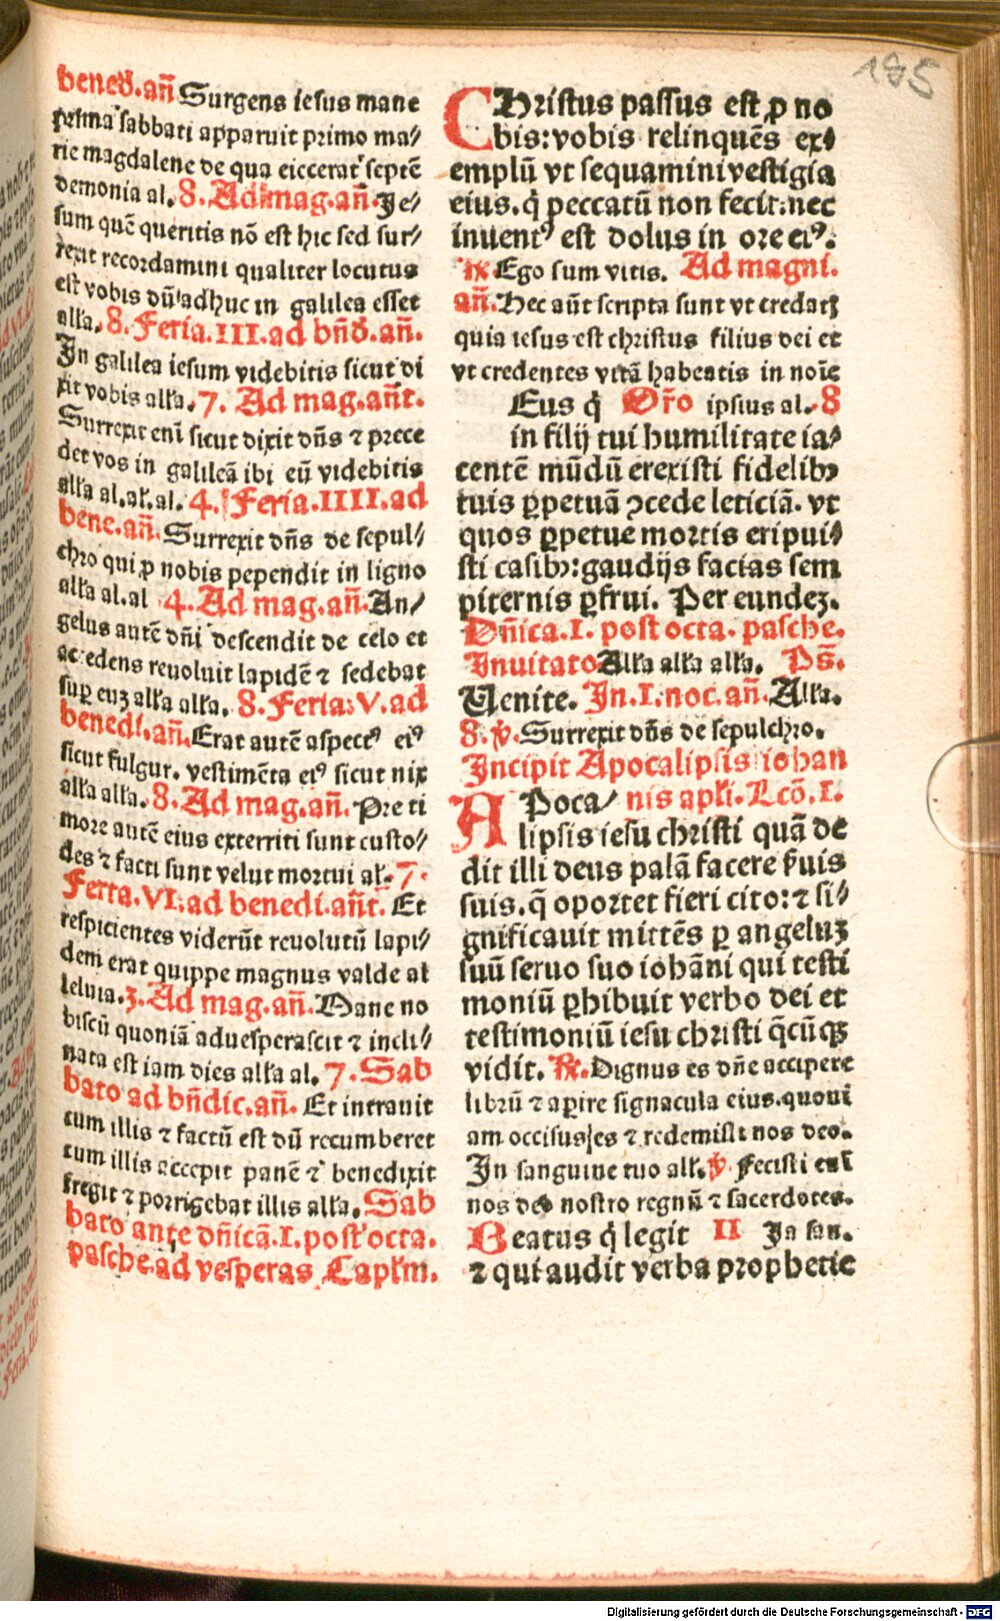 185
bened̄.an̄ Surgens iesus mane
prima sabbati apparuit primo ma⸗
rie magdalene de qua eiecerat septē
demonia al. 8. Ad mag.an̄. Je⸗
sum quē queritis nō est hic sed sur⸗
rexit recordamini qualiter locutus
est vobis dū adhuc in galilea esset
alła. 8. Feria.III.ad bn̄d̄.an̄.
In galilea iesum videbitis sicut di
xit vobis alła. 7. Ad mag.an̄t.
Surrexit enī sicut dixit dn̄s ⁊ prece
det vos in galileā ibi eū videbitis
alła al.al.al. 4. Feria.IIII.ad
bene.an̄. Surrexit dn̄s de sepul⸗
chro qui ꝓ nobis pependit in ligno
alła al.al 4. Ad mag.an̄. An⸗
gelus autē dn̄i descendit de celo et
accedens reuoluit lapidē ⁊ sedebat
suꝑ euꝫ alła alła. 8. Feria.V.ad
benedi.an̄. Erat autē aspectꝰ eiꝰ
sicut fulgur. vestimēta eiꝰ sicut nix
alła alła. 8. Ad mag.an̄. Pre ti
more autē eius exterriti sunt custo⸗
des ⁊ facti sunt velut mortui ał. 7.
Feria.VI.ad benedi.an̄t. Et
respicientes viderūt reuolutū lapi⸗
dem erat quippe magnus valde al
leluia. 3. Ad mag.an̄. Mane no
biscū quoniā aduesperascit ⁊ incli⸗
nata est iam dies alła al. 7. Sab
bato ad bn̄dic.an̄. Et intrauit
cum illis ⁊ factū est dū recumberet
cum illis accepit panē ⁊ benedixit
fregit ⁊ porrigebat illis alła. Sab
bato ante dn̄icā.I.post octa.
pasche.ad vesperas Capłm.
CHristus passus est ꝓ no
bis:vobis relinquēs ex⸗
emplū vt sequamini vestigia
eius.q̇ peccatū non fecit:nec
inuentꝰ est dolus in ore eiꝰ.
ix. Ego sum vitis. Ad magni.
an̄. Hec aūt scripta sunt vt credatꝭ
quia iesus est christus filius dei et
vt credentes vitā habeatis in noīe
Eus q̇ Or̄o ipsius al. 8
in filij tui humilitate ia⸗
centē mūdū erexisti fidelibꝫ
tuis ꝑpetuā ↄcede leticiā. vt
quos ꝑpetue mortis eripui⸗
sti casibꝫ:gaudijs facias sem
piternis ꝑfrui. Per eundeꝫ.
Dn̄ica.I. post octa. pasche.
Inuitato Alła alła alła. Ps̄.
Venite. In.I.noc.an̄. Alła.
8. ℣. Surrexit dn̄s de sepulchro.
Incipit Apocalipsis iohan
APoca⸗ nis apłi. Lcō.I.
lipsis iesu christi quā de
dit illi deus palā facere ẜuis
suis.q̄ oportet fieri cito:⁊ si⸗
gnificauit mittēs ꝑ angeluꝫ
suū seruo suo iohāni qui testi
moniū ꝑhibuit verbo dei et
testimoniū iesu christi q̄cūqꝫ
vidit. ℟. Dignus es dn̄e accipere
librū ⁊ aꝑire signacula eius.quoni
am occisus es ⁊ redemisti nos deo.
In sanguine tuo all. ℣ Fecisti enī
nos deo nostro regnū ⁊ sacerdotes.
Beatus q̇ legit II In san.
⁊ qui audit verba prophetie
Digitalisierung gefördert durch die Deutsche Forschungsgemeinschaft - DFG